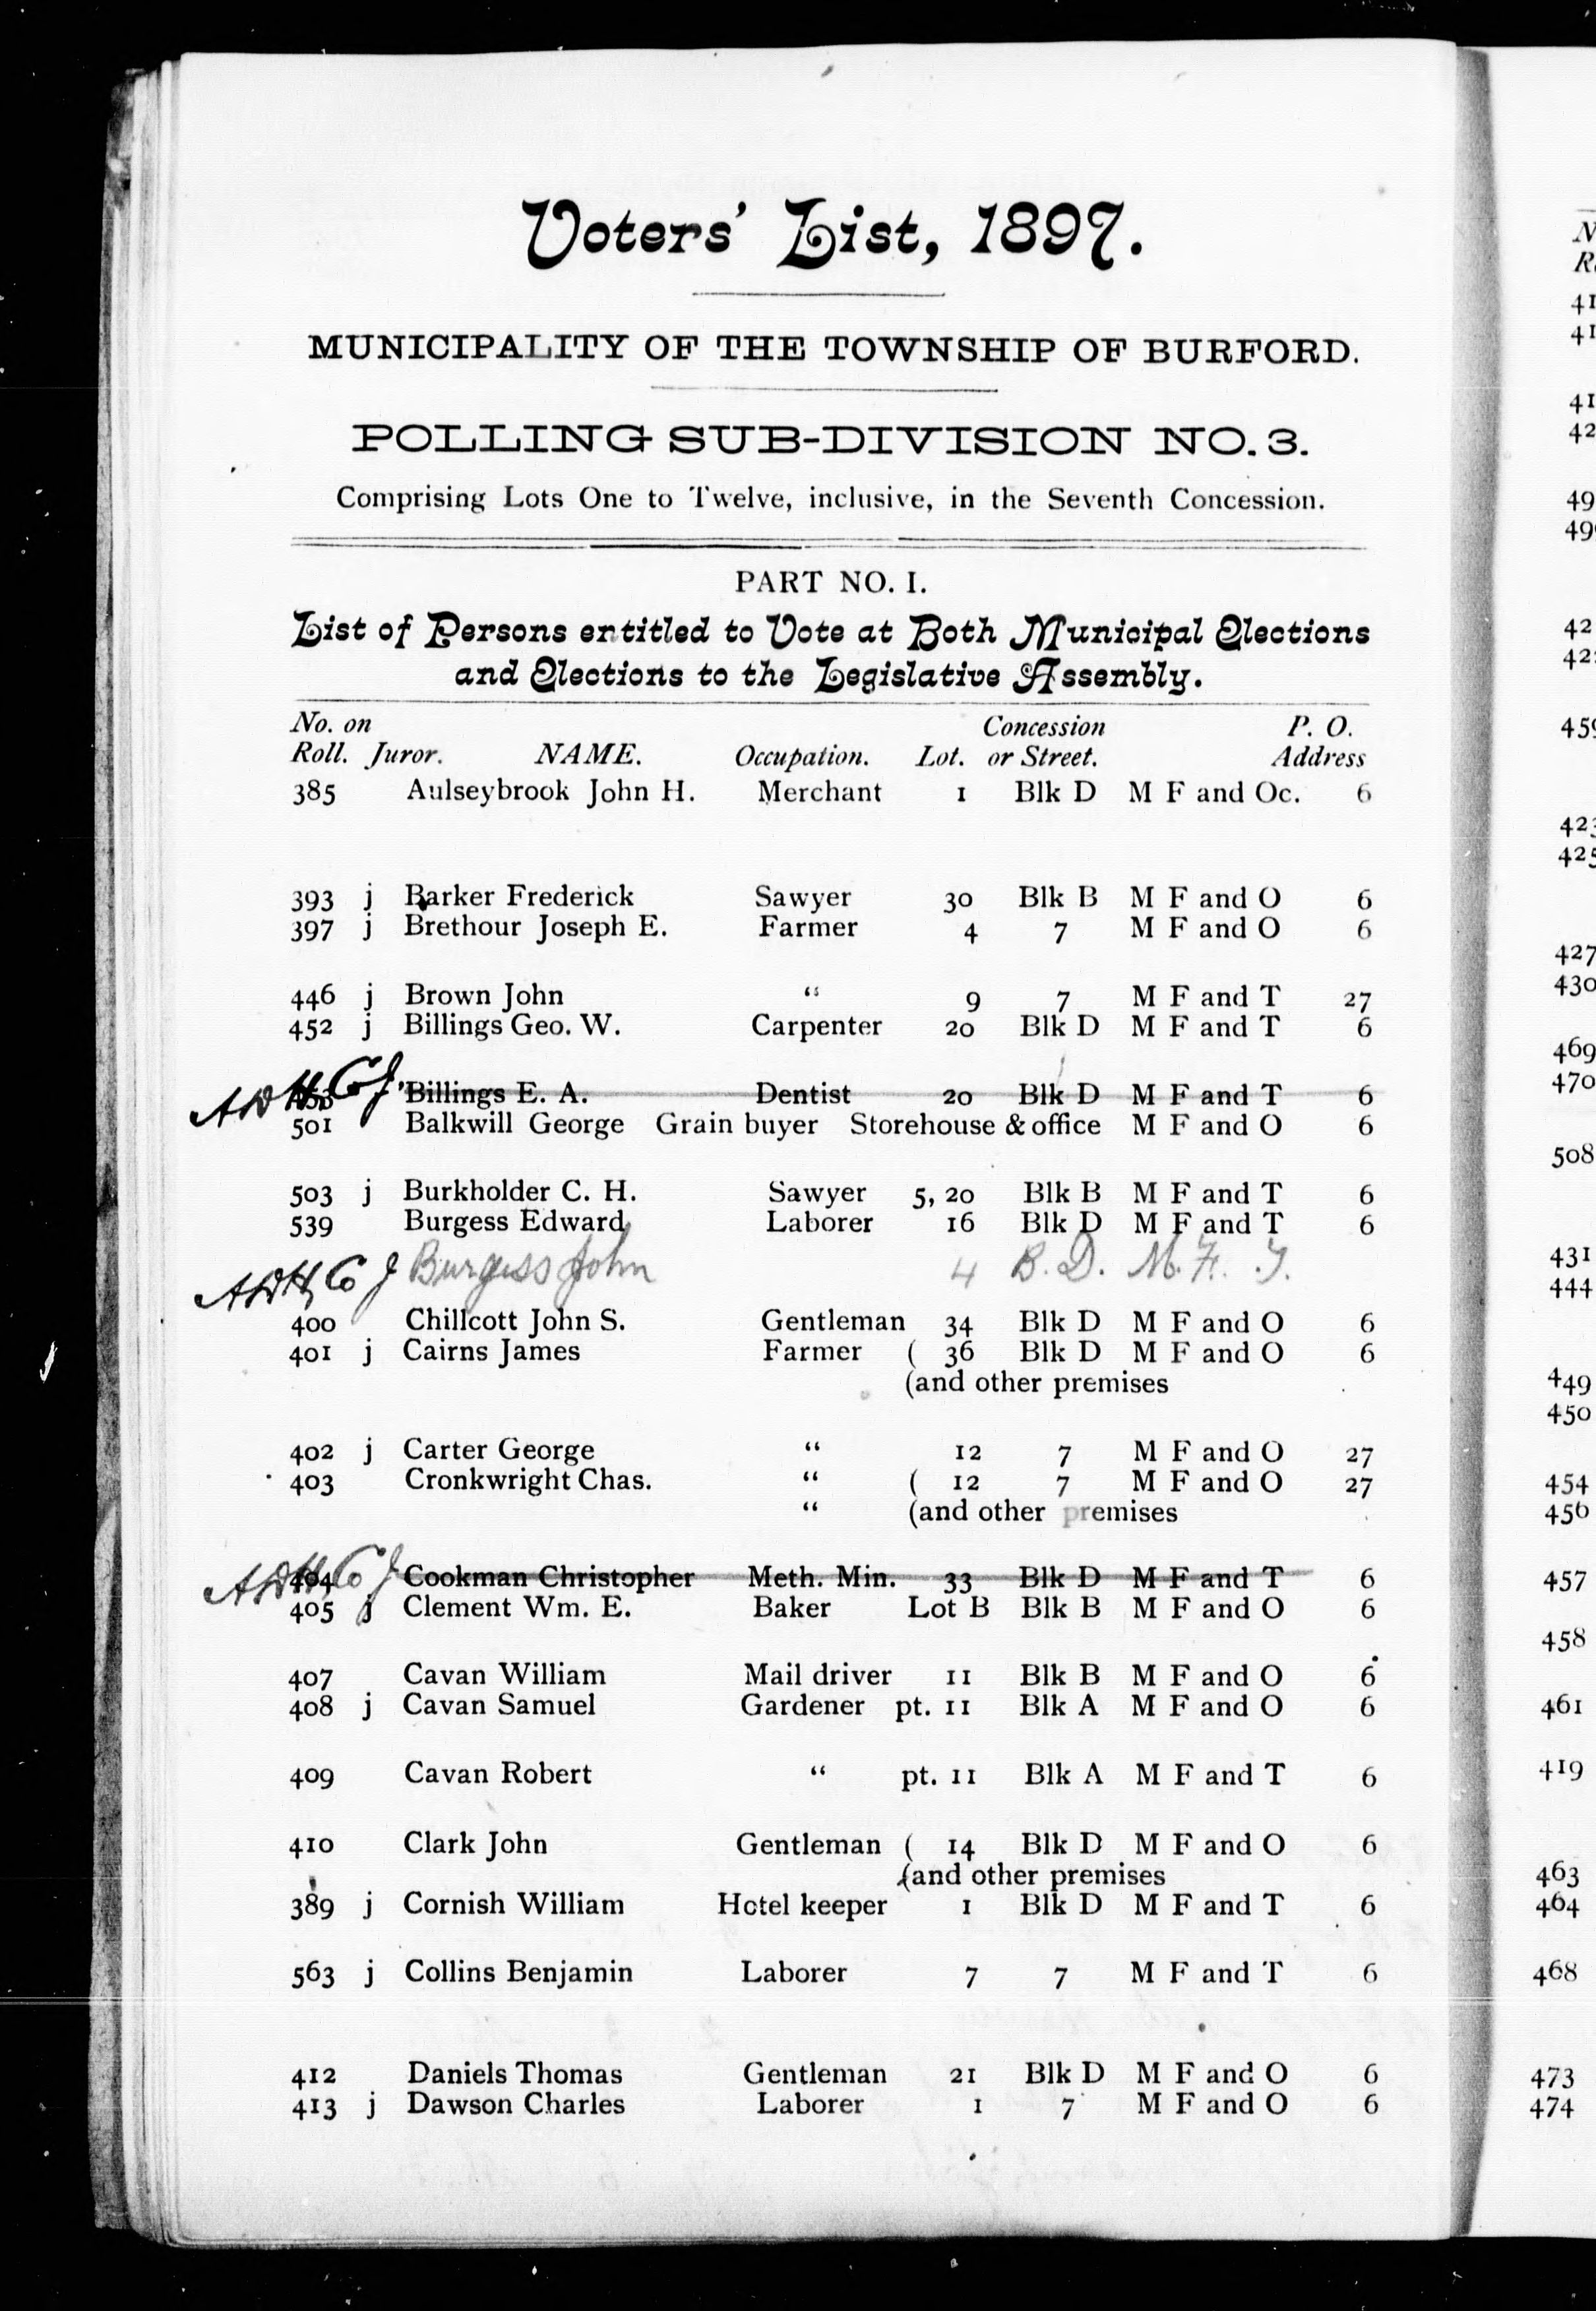 Voters' List, 1897.
MUNICIPALITY OF THE TOWNSHIP OF BURFORD.
POLLING SUB-DIVISION NO. 3.
Comprising Lots One to Twelve, inclusive, in the Seventh Concession.
PART NO. I.
List of Persons entitled to Vote at Both Municipal Elections
and Elections to the Legislative Assembly.
No. on Concession P. O.
Roll. Juror. NAME. Occupation. Lot. or Street. Address
385 Aulseybrook John H. Merchant 1 Blk D M F and Oc. 6
393 j Barker Frederick Sawyer 30 Blk B M F and O 6
397 j Brethour Joseph E. Farmer 4 7 M F and O 6
446 j Brown John “ 9 7 M F and T 27
452 j Billings Geo. W. Carpenter 20 Blk D M F and T 6
Billings E. A. Dentist 20 Blk D M F and T 6
501 Balkwill George Grain buyer Storehouse & office M F and O 6
503 j Burkholder C. H. Sawyer 5, 20 Blk B M F and T 6
539 Burgess Edward Laborer 16 Blk D M F and T 6
Burgess John 4 B. D. M. F. T.
400 Chillcott John S. Gentleman 34 Blk D M F and O 6
401 j Cairns James Farmer ( 36 Blk D M F and O 6
(and other premises
402 j Carter George “ 12 7 M F and O 27
403 Cronkwright Chas. “ ( 12 7 M F and O 27
“ (and other premises
404 Cookman Christopher Meth. Min. 33 Blk D M F and T 6
405 j Clement Wm. E. Baker Lot B Blk B M F and O 6
407 Cavan William Mail driver 11 Blk B M F and O 6
408 j Cavan Samuel Gardener pt. 11 Blk A M F and O 6
409 Cavan Robert “ pt. 11 Blk A M F and T 6
410 Clark John Gentleman ( 14 Blk D M F and O 6
(and other premises
389 j Cornish William Hotel keeper 1 Blk D M F and T 6
563 j Collins Benjamin Laborer 7 7 M F and T 6
412 Daniels Thomas Gentleman 21 Blk D M F and O 6
413 j Dawson Charles Laborer 1 7 M F and O 6
427
430
469
470
508
431
444
449
450
454
456
457
458
461
419
463
464
468
473
474